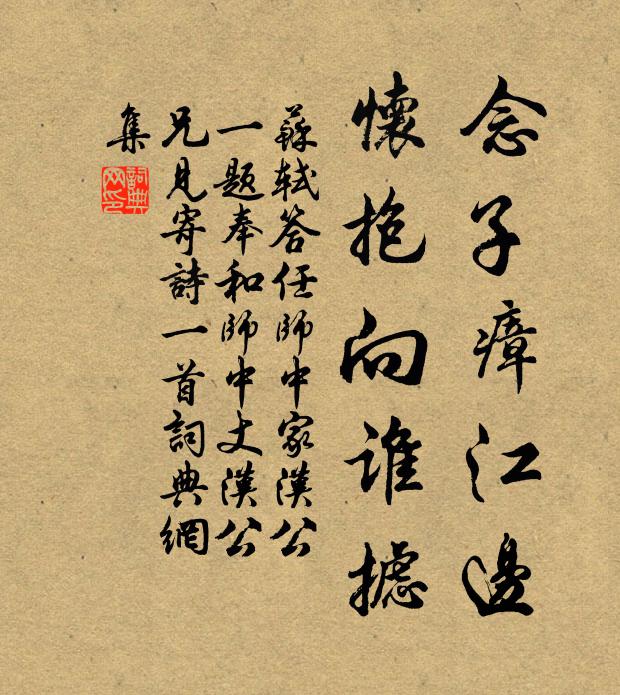 念子瘴江邊
懷抱向谁攄
蘇軾答任師中家漢公
一题奉和師中丈漢公
兄見寄詩一首詞典網
集
詞典网印